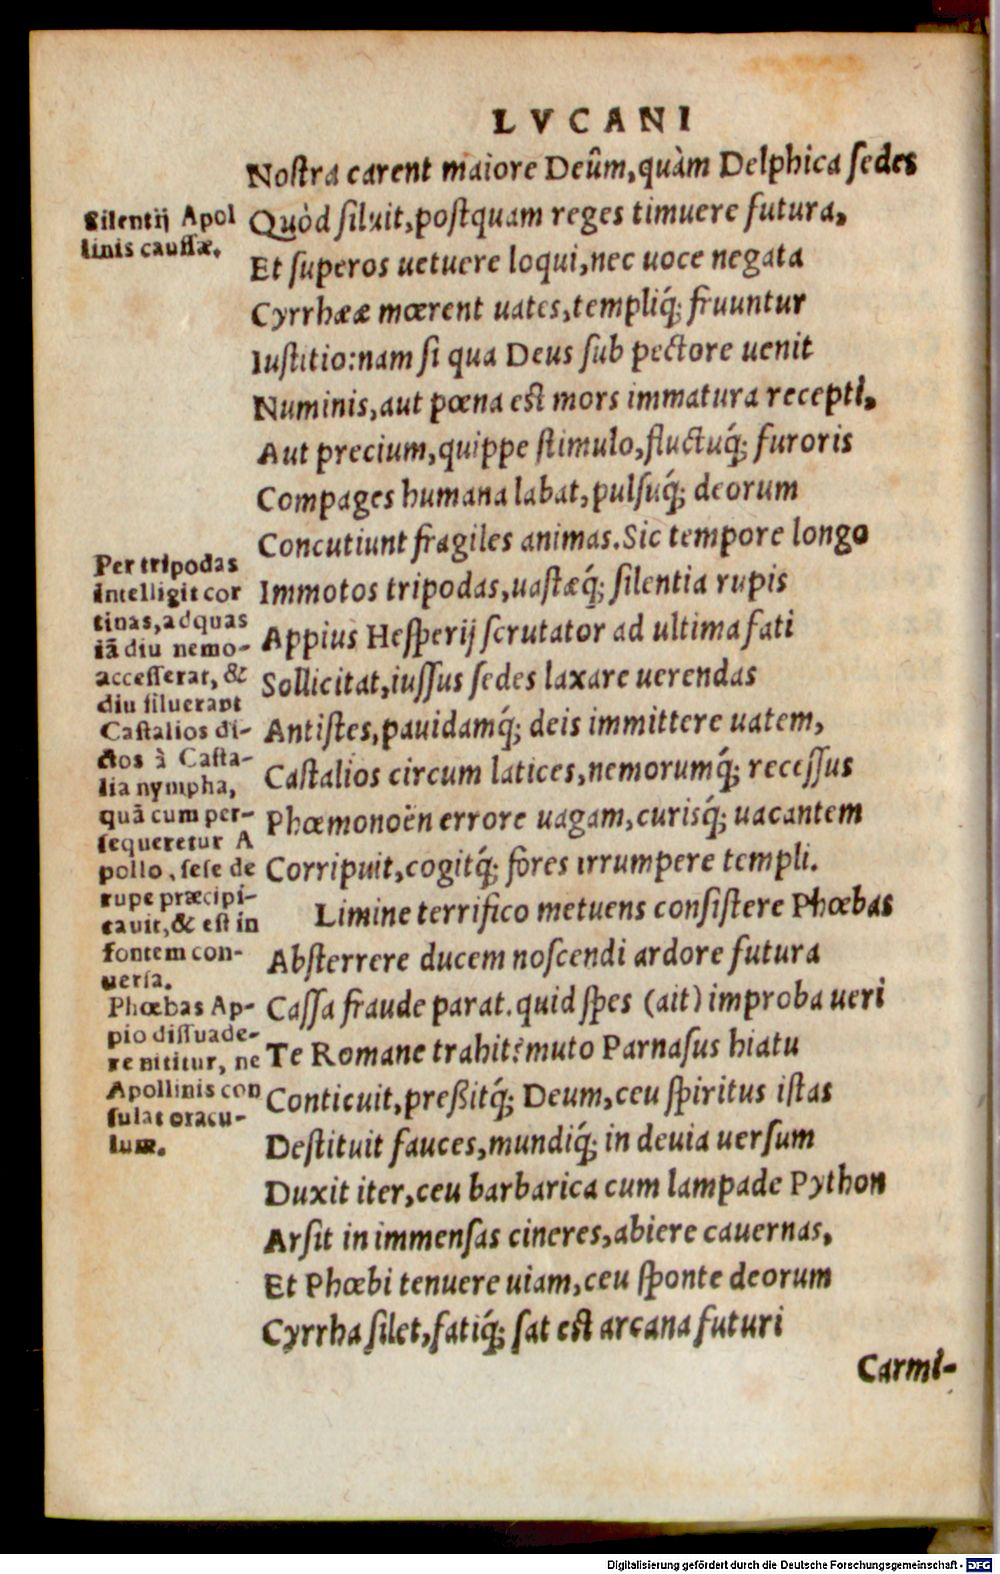 LVCANI
Nostra carent maiore Deûm, quàm Delphica sedes
Quòd siluit, postquam reges timuere futura,
Et superos uetuere loqui, nec uoce negata
Cyrrhææ mœrent uates, templiq́; fruuntur
Iustitio: nam si qua Deus sub pectore uenit
Numinis, aut pœna est mors immatura recepti,
Aut precium, quippe stimulo, fluctuq́; furoris
Compages humana labat, pulsuq́; deorum
Concutiunt fragiles animas. Sic tempore longo
Immotos tripodas, uastæq́; silentia rupis
Appius Hesperij scrutator ad ultima fati
Sollicitat, iussus sedes laxare uerendas
Antistes, pauidamq́; deis immittere uatem,
Castalios circum latices, nemorumq́; recessus
Phœmonoën errore uagam, curisq́; uacantem
Corripuit, cogitq́; fores irrumpere templi.
Limine terrifico metuens consistere Phœbas
Absterrere ducem noscendi ardore futura
Cassa fraude parat. quid spes (ait) improba ueri
Te Romane trahit? muto Parnasus hiatu
Conticuit, preßitq́; Deum, ceu spiritus istas
Destituit fauces, mundiq́; in deuia uersum
Duxit iter, ceu barbarica cum lampade Python
Arsit in immensas cineres, abiere cauernas,
Et Phœbi tenuere uiam, ceu sponte deorum
Cyrrha silet, fatiq́; sat est arcana futuri
Carmi-
Silentij Apol
linis caussæ.
Per tripodas
intelligit cor
tinas, ad quas
iã diu nemo-
accesserat, &
diu siluerant
Castalios di-
ctos à Casta-
lia nympha,
quã cum per-
sequeretur A
pollo, sese de
rupe præcipi-
tauit, & est in
fontem con-
uersa.
Phœbas Ap-
pio dissuade-
re nititur, ne
Apollinis con
sulat oracu-
lum.
Digitalisierung gefördert durch die Deutsche Forschungsgemeinschaft - DFG